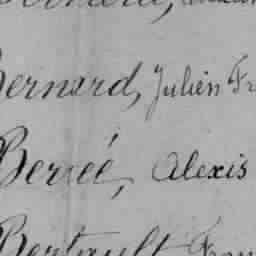 Bernard, Julien Fr
Berreé, Alexis
Bertault Fran